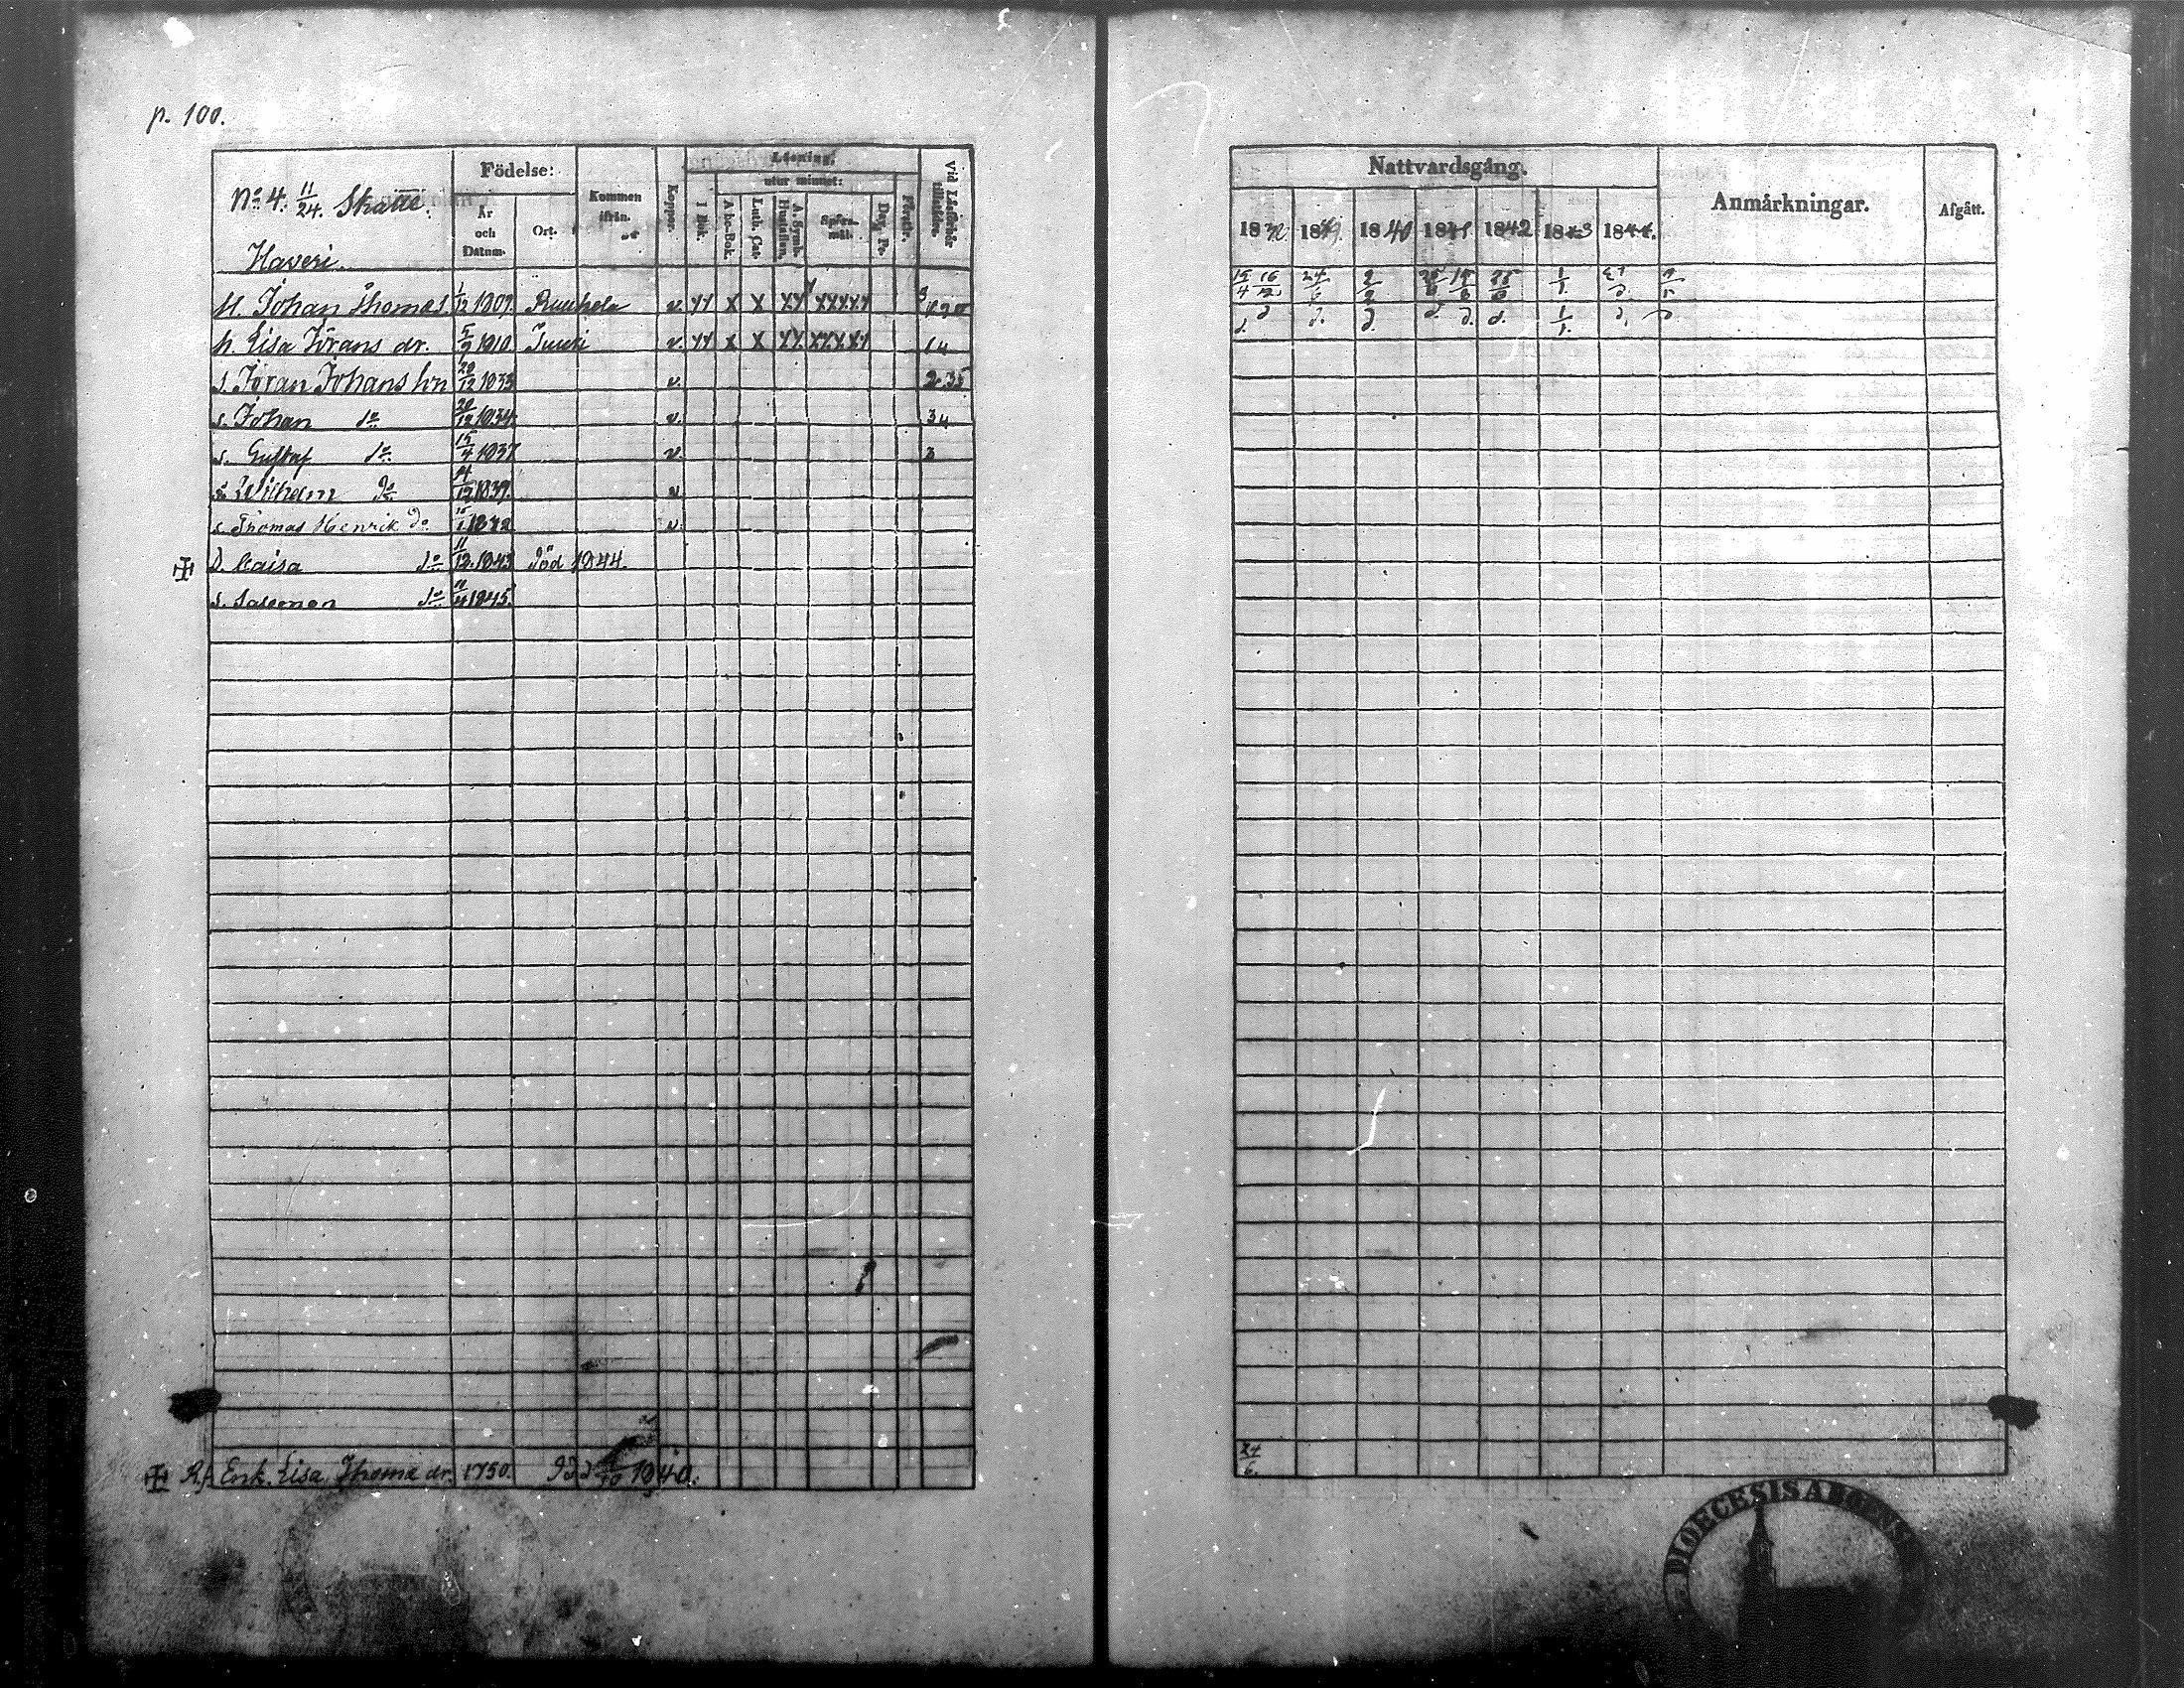 p. 100.
No 4. 11/24. Skatte.
Haveri.
Födelse:
År och Datum.
Ort.
Kommen ifrån.
Koppor.
Läsning.
I Bok.
utur minnet:
A b c-Bok.
Luth. Cat.
A. Symb. Hustaflan.
Spörs-mål.
Dav. Ps.
Förstår.
Vid Läsförhör tillstädes.
M. Johan Thomas. 1/12 1809. Ruuhola v. XX X X XX XXXXX
h. Lisa Jörans dr. 5/9 1810. Juuti v. XX X X XX XXXXX 14
s. Jöran Johans son 20/12 1833 v. 2.35
s. Johan do 20/12 1834. v. 34
s. Gustaf do 15/4 1837 v. 3
s. Wilhelm do 4/12 1839. v
s. Thomas Henrik do. 15/1 1842 v.
D. Caisa do 11/12 1843 död 1844.
s. Salomon do 11/4 1845.
Rf. Enk. Lisa Thoma dr. 1750. död 1840.
Nattvardsgång.
1838 1839 1840 1841 1842 1843 1844.
Anmärkningar.
Afgått.
15/4 16/12 24/6 2/2 25/6 15/8 25/6 1/1
d. d d. d. d. d. d. 1/1. d.
24/6.
DIOECESIS ABOENSIS